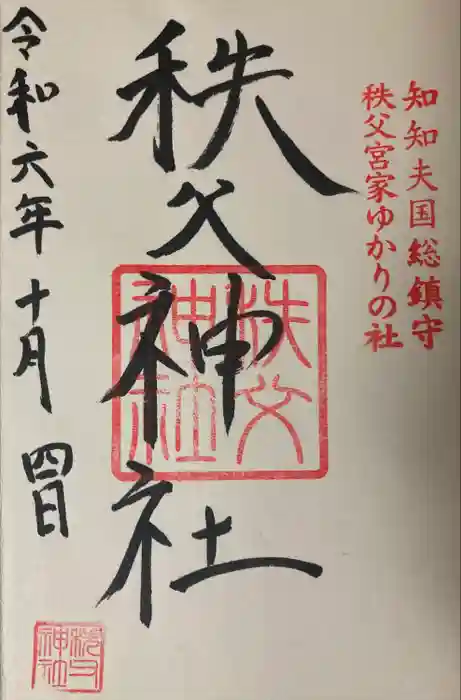 知知夫国総鎮守
秩父宮家ゆかりの社
秩父神社
秩父神社
令和六年十月四日
秩父神社